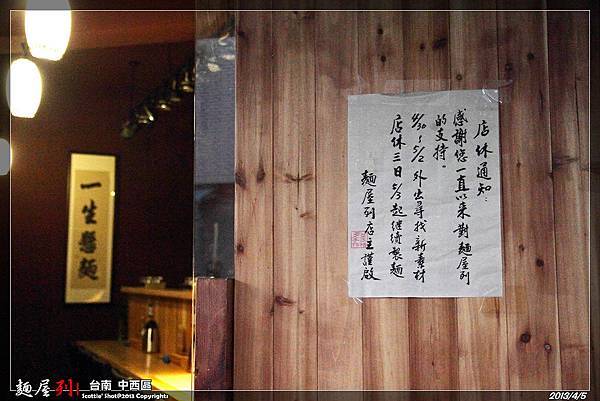 店休通知：
感謝您一直以來對麵屋列
的支持。
4/30～5/2 外出尋找新素材
店休三日 5/3起繼續製麵
麵屋列店主謹啟
一生懸麵
麵屋列 台南 中西區
Scottie' Shot@2013 Copyright
2013/4/5